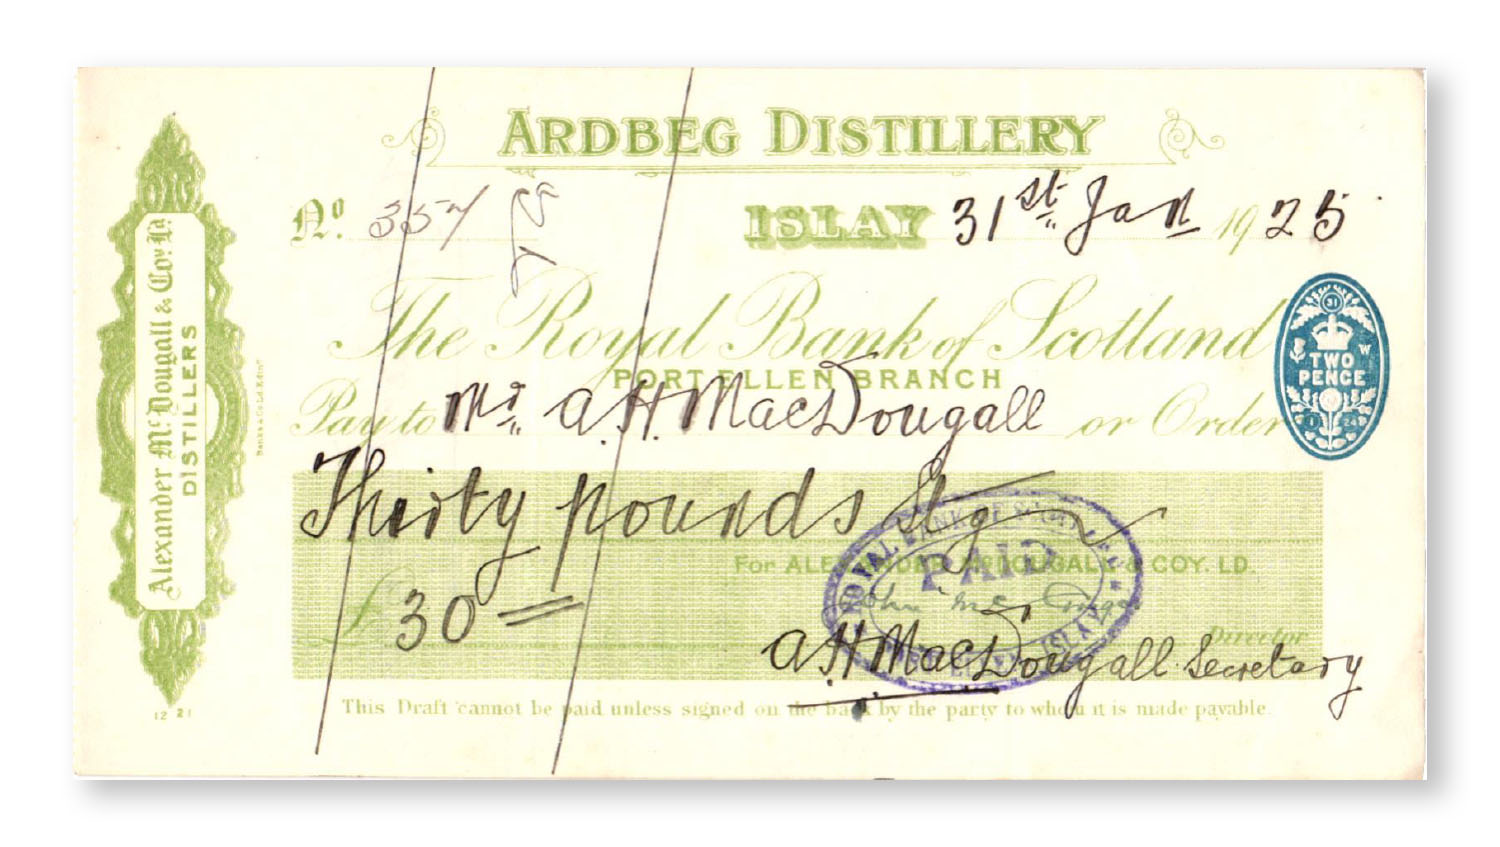 ARDBEG DISTILLERY
No. 357
ISLAY 31st Jan 1925
The Royal Bank of Scotland
PORT ELLEN BRANCH
Pay to Mr. A.H. MacDougall or Order
Thirty pounds Stg
For ALEXANDER McDOUGALL & COY. LD.
£30
Director
A.H. MacDougall Secretary
This Draft cannot be paid unless signed on the back by the party to whom it is made payable.
Alexander McDougall & Coy. Ld.
DISTILLERS
12 21
31
W
TWO
PENCE
1 24
ROYAL BANK OF SCOTLAND
PAID
ISLAY